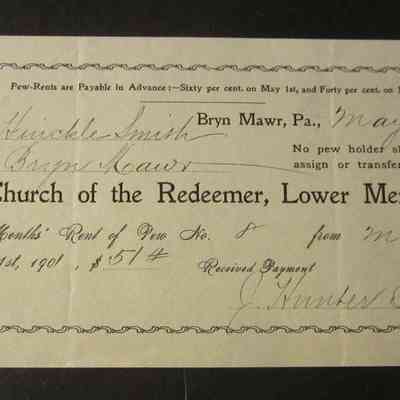 Pew-Rents are Payable in Advance:—Sixty per cent. on May 1st, and Forty per cent. on
Bryn Mawr, Pa., May
Hinckle Smith
No pew holder
Bryn Mawr
assign or transfer
Church of the Redeemer, Lower Mer
Months' Rent of Pew No. 8 from M
1st, 190 , $ 514
Received Payment
J. Hunter